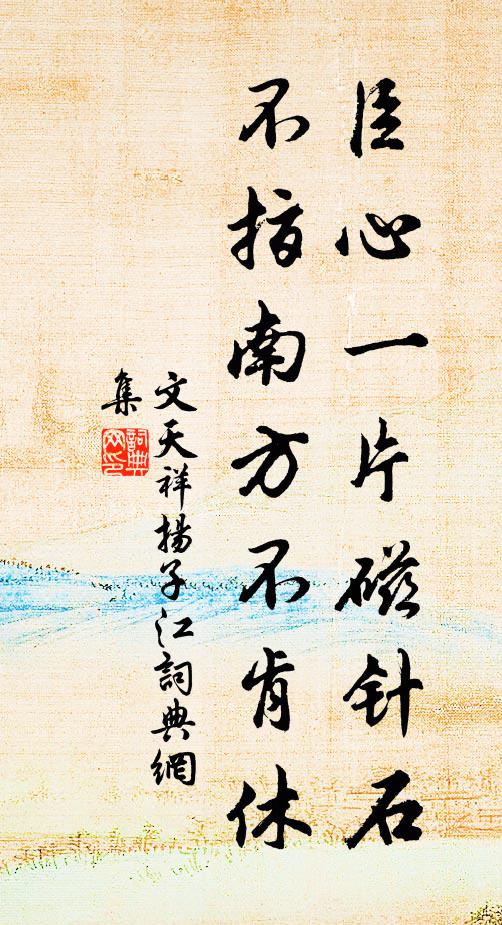 臣心一片磁针石
不指南方不肯休
文天祥揚子江詞典網
集
詞典
网印